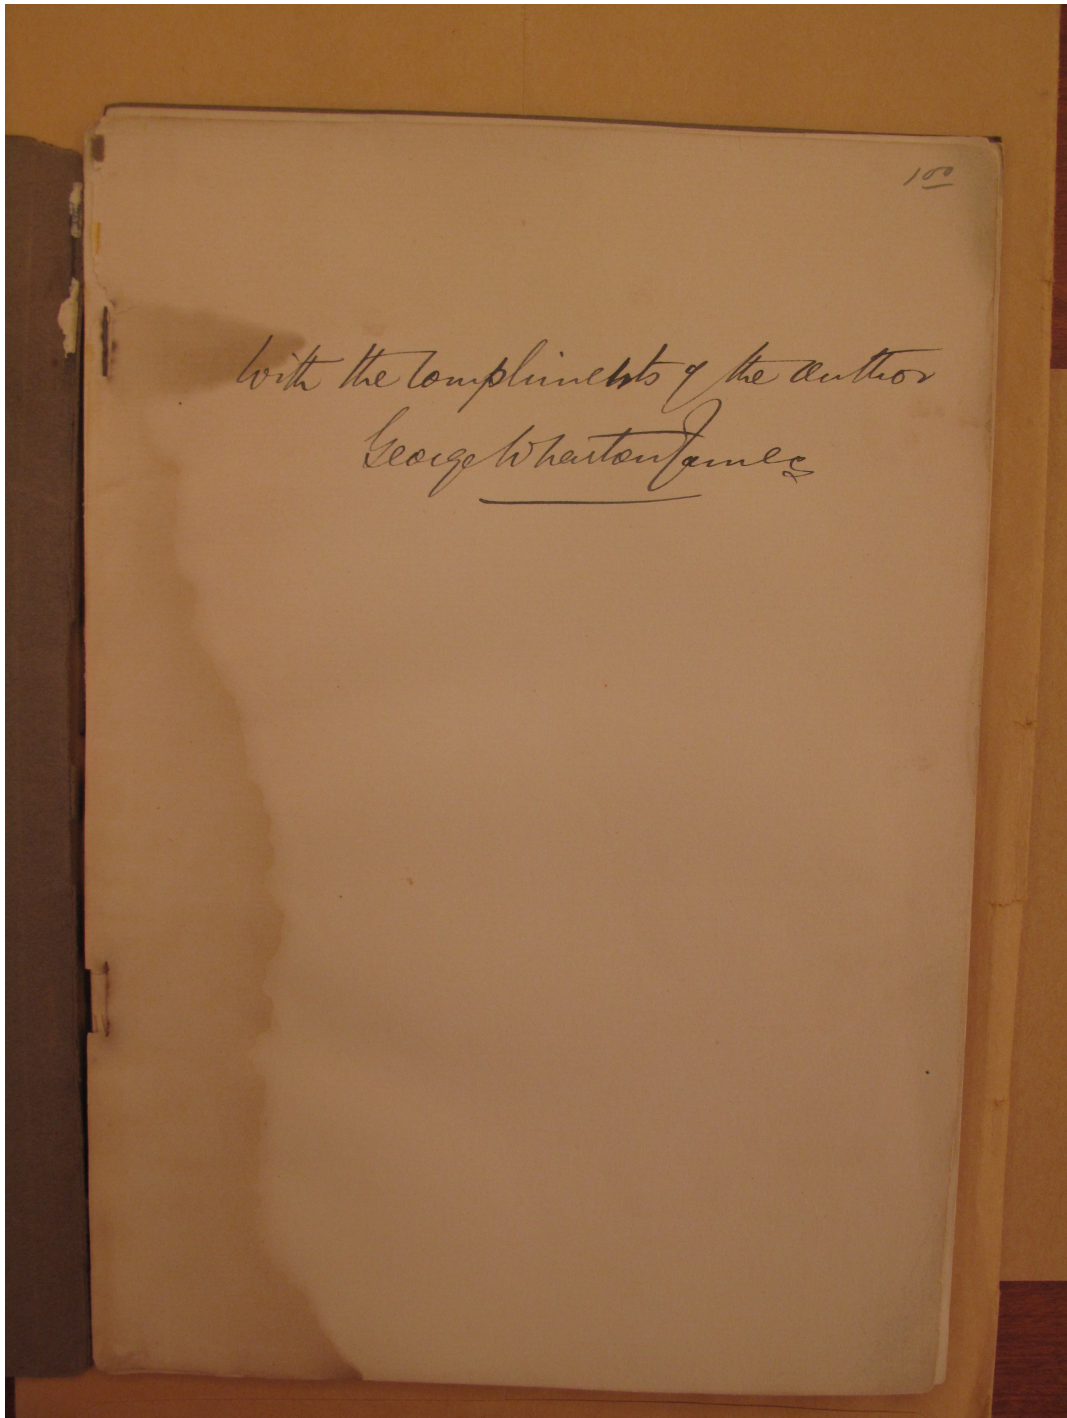 1 00
With the compliments of the author
George Wharton James